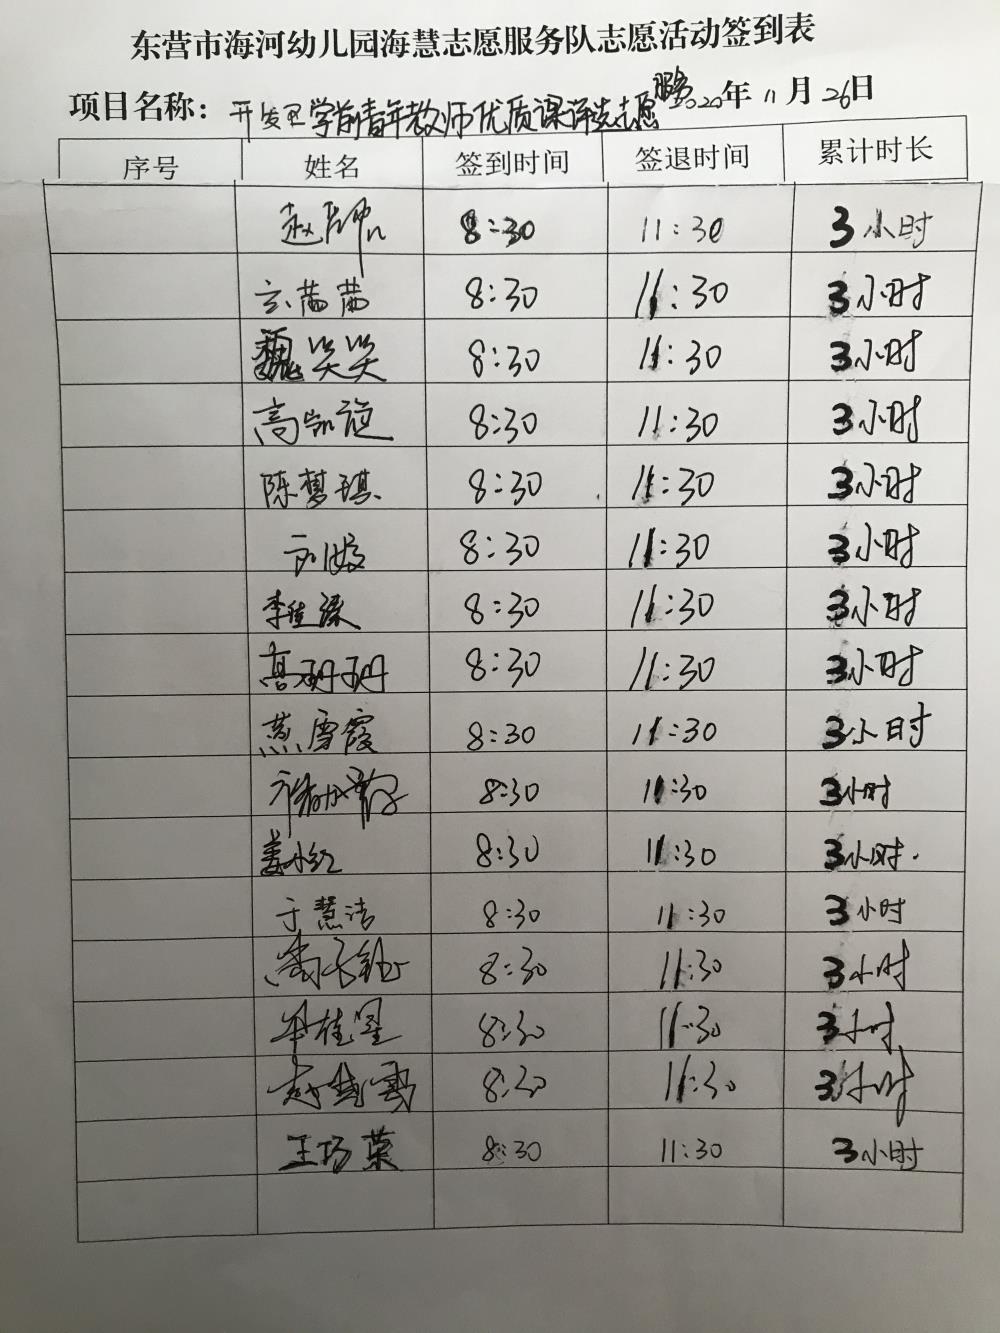 东营市海河幼儿园海慧志愿服务队志愿活动签到表
项目名称：开发区学前青年教师优质课评选志愿服务 2020年11月26日
序号 姓名 签到时间 签退时间 累计时长
赵帅 8:30 11:30 3小时
玄茜茜 8:30 11:30 3小时
魏笑笑 8:30 11:30 3小时
高凯旋 8:30 11:30 3小时
陈梦琪 8:30 11:30 3小时
8:30 11:30 3小时
李佳潔 8:30 11:30 3小时
高珊珊 8:30 11:30 3小时
燕雪霞 8:30 11:30 3小时
8:30 11:30 3小时
姜小红 8:30 11:30 3小时
于慧洁 8:30 11:30 3小时
8:30 11:30 3小时
8:30 11:30 3小时
8:30 11:30 3小时
王巧荣 8:30 11:30 3小时